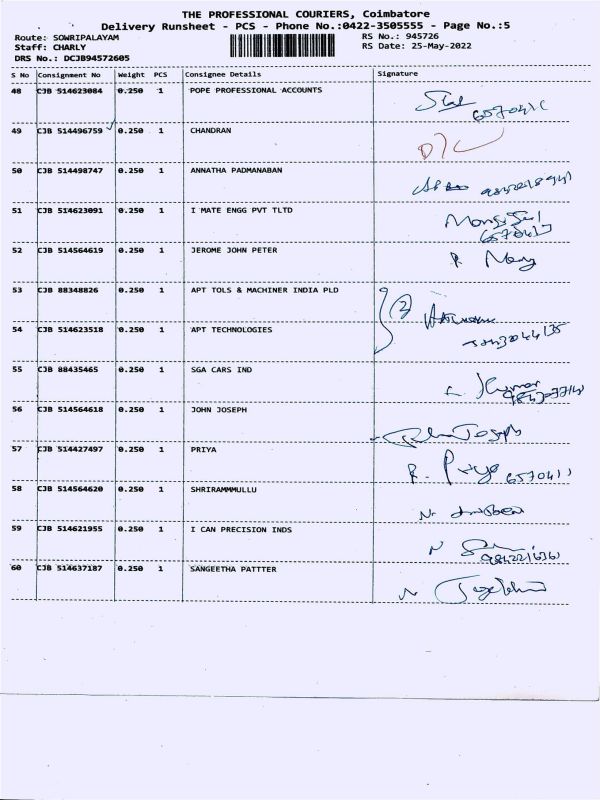 THE PROFESSIONAL COURIERS, Coimbatore
Delivery Runsheet - PCS - Phone No.:0422-3505555 - Page No.:5
Route: SOWRIPALAYAM RS No.: 945726
Staff: CHARLY RS Date: 25-May-2022
DRS No.: DCJB94572605
S No Consignment No Weight PCS Consignee Details Signature
48 CJB 514623084 0.250 1 POPE PROFESSIONAL ACCOUNTS
49 CJB 514496759 0.250 1 CHANDRAN
50 CJB 514498747 0.250 1 ANNATHA PADMANABAN
51 CJB 514623091 0.250 1 I MATE ENGG PVT TLTD
52 CJB 514564619 0.250 1 JEROME JOHN PETER
53 CJB 88348826 0.250 1 APT TOLS & MACHINER INDIA PLD
54 CJB 514623518 0.250 1 APT TECHNOLOGIES
55 CJB 88435465 0.250 1 SGA CARS IND
56 CJB 514564618 0.250 1 JOHN JOSEPH
57 CJB 514427497 0.250 1 PRIYA R. Priya
58 CJB 514564620 0.250 1 SHRIRAMMMULLU
59 CJB 514621955 0.250 1 I CAN PRECISION INDS
60 CJB 514637187 0.250 1 SANGEETHA PATTTER